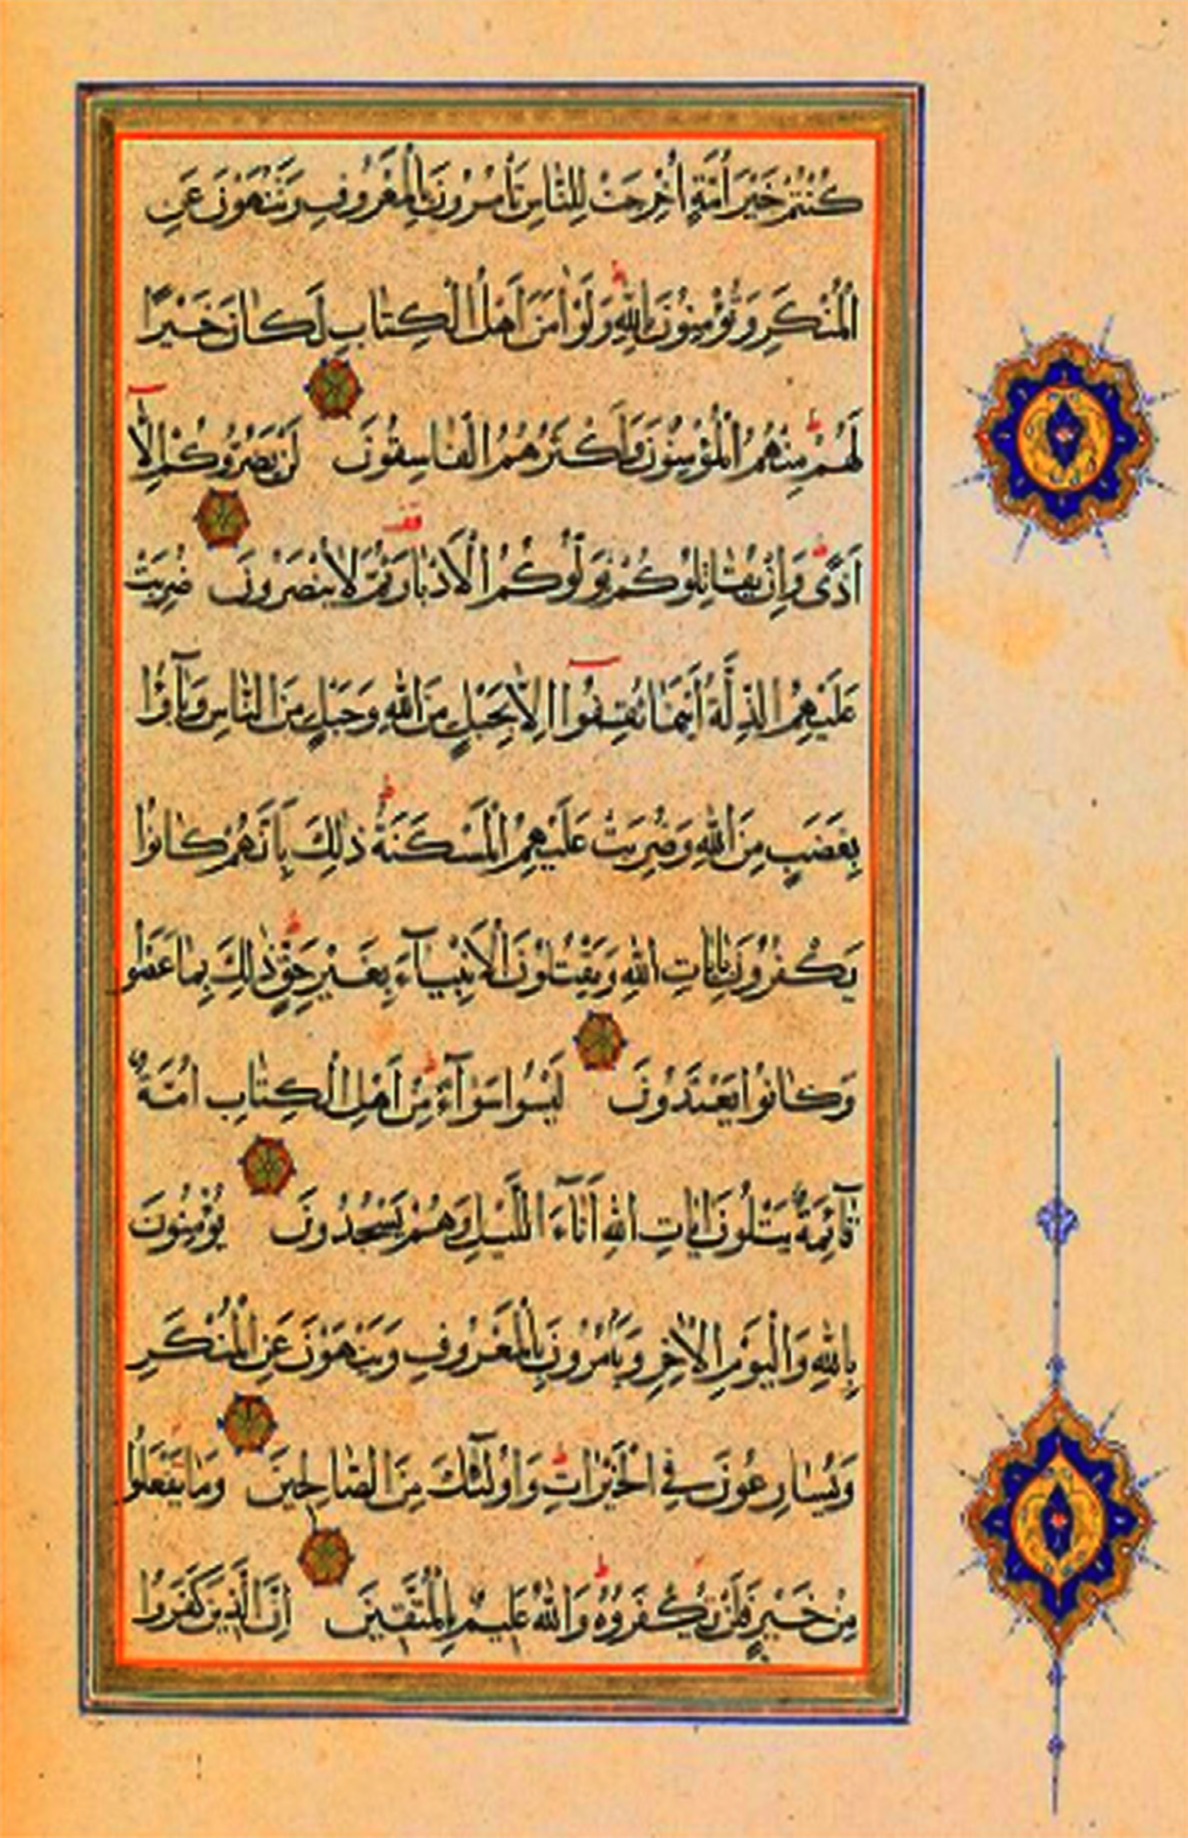 كُنْتُمْ خَيْرَ اُمَّةٍ اُخْرِجَتْ لِلنَّاسِ تَأْمُرُونَ بِالْمَعْرُوفِ وَتَنْهَوْنَ عَنِ
الْمُنْكَرِ وَتُؤْمِنُونَ بِاللّٰهِ ط وَلَوْ اٰمَنَ اَهْلُ الْكِتَابِ لَكَانَ خَيْرًا
لَهُمْ ط مِنْهُمُ الْمُؤْمِنُونَ وَاَكْثَرُهُمُ الْفَاسِقُونَ لَنْ يَضُرُّوكُمْ اِلَّٓا
اَذًى ط وَاِنْ يُقَاتِلُوكُمْ يُوَلُّوكُمُ الْاَدْبَارَ قف ثُمَّ لَا يُنْصَرُونَ ضُرِبَتْ
عَلَيْهِمُ الذِّلَّةُ اَيْنَمَا ثُقِفُٓوا اِلَّا بِحَبْلٍ مِنَ اللّٰهِ وَحَبْلٍ مِنَ النَّاسِ وَبَآؤُا
بِغَضَبٍ مِنَ اللّٰهِ وَضُرِبَتْ عَلَيْهِمُ الْمَسْكَنَةُ ط ذٰلِكَ بِاَنَّهُمْ كَانُوا
يَكْفُرُونَ بِاٰيَاتِ اللّٰهِ وَيَقْتُلُونَ الْاَنْبِيَآءَ بِغَيْرِ حَقٍّ ط ذٰلِكَ بِمَا عَصَوْا
وَكَانُوا يَعْتَدُونَ لَيْسُوا سَوَآءً ط مِنْ اَهْلِ الْكِتَابِ اُمَّةٌ
قَآئِمَةٌ يَتْلُونَ اٰيَاتِ اللّٰهِ اٰنَآءَ اللَّيْلِ وَهُمْ يَسْجُدُونَ يُؤْمِنُونَ
بِاللّٰهِ وَالْيَوْمِ الْاٰخِرِ وَيَأْمُرُونَ بِالْمَعْرُوفِ وَيَنْهَوْنَ عَنِ الْمُنْكَرِ
وَيُسَارِعُونَ فِي الْخَيْرَاتِ ط وَاُولٰٓئِكَ مِنَ الصَّالِحِينَ وَمَا يَفْعَلُوا
مِنْ خَيْرٍ فَلَنْ يُكْفَرُوهُ ط وَاللّٰهُ عَلِيمٌ بِالْمُتَّقِينَ اِنَّ الَّذِينَ كَفَرُوا